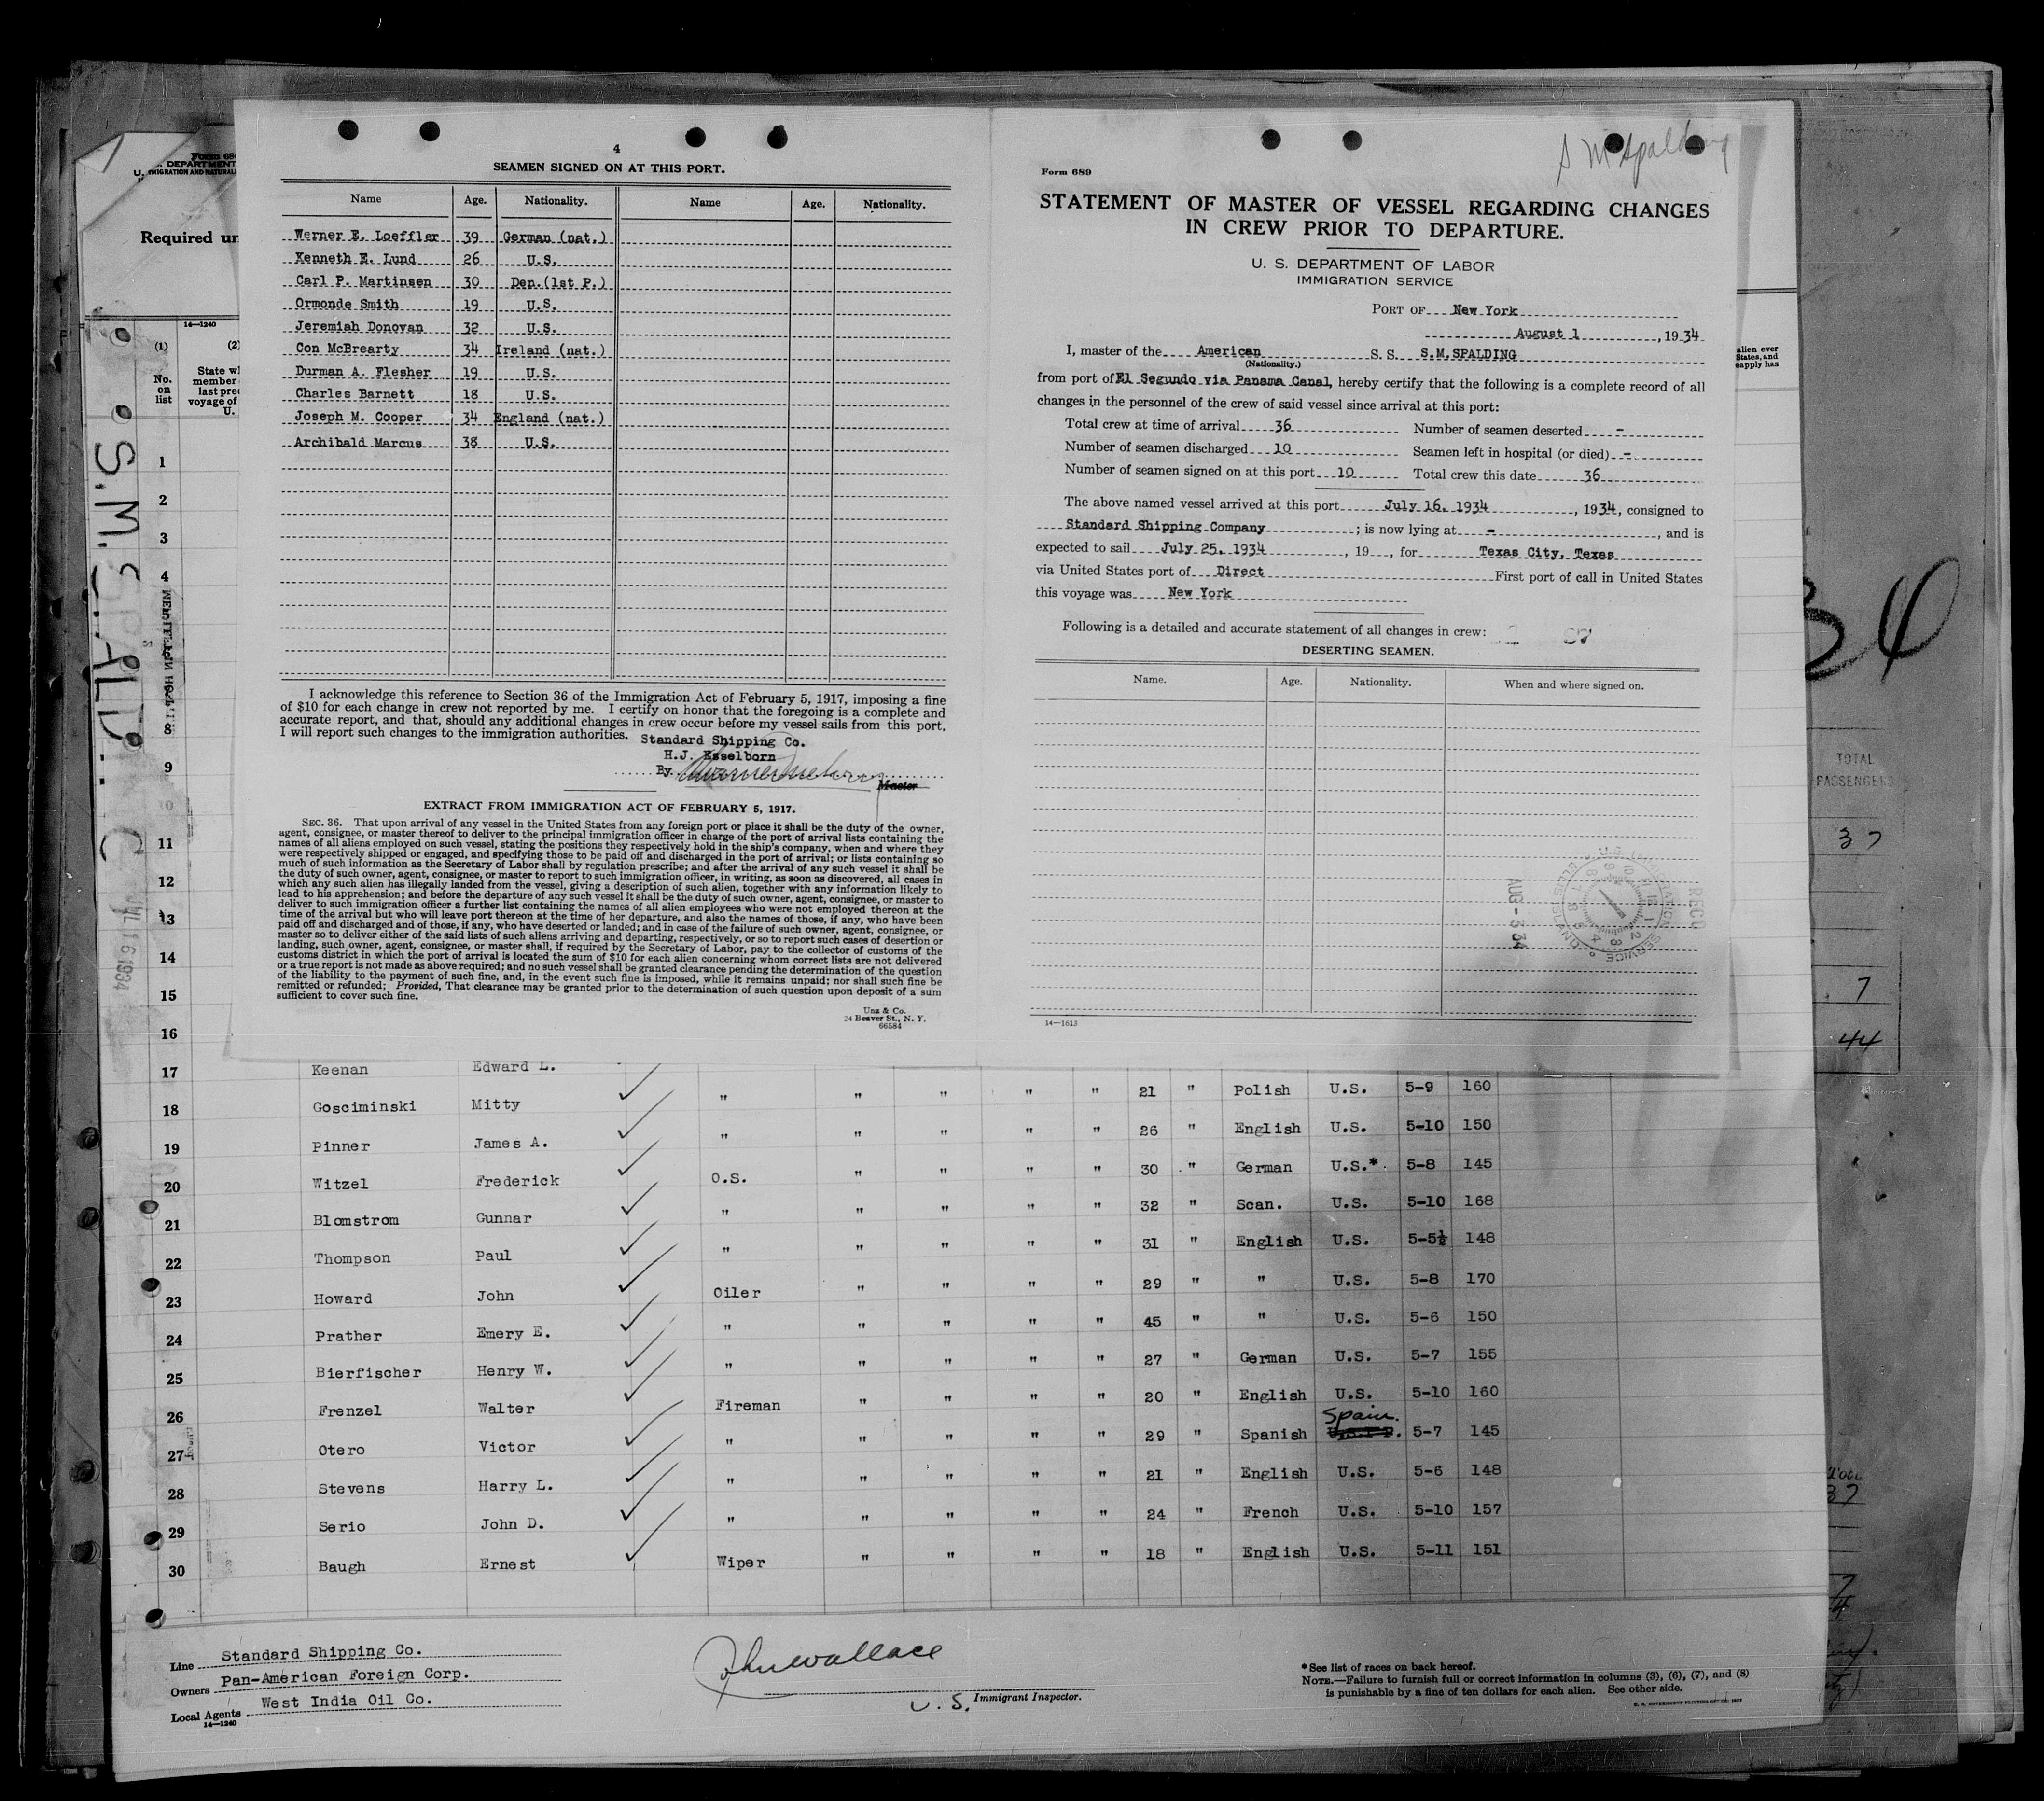 4
SEAMEN SIGNED ON AT THIS PORT.
Name Age. Nationality. Name Age. Nationality.
Werner E. Loeffler 39 German (nat.)
Kenneth E. Lund 26 U.S.
Carl P. Martinsen 30 Den.(1st P.)
Ormonde Smith 19 U.S.
Jeremiah Donovan 32 U.S.
Con McBrearty 34 Ireland (nat.)
Durman A. Flesher 19 U.S.
Charles Barnett 18 U.S.
Joseph M. Cooper 34 England (nat.)
Archibald Marcus 38 U.S.
I acknowledge this reference to Section 36 of the Immigration Act of February 5, 1917, imposing a fine
of $10 for each change in crew not reported by me. I certify on honor that the foregoing is a complete and
accurate report, and that, should any additional changes in crew occur before my vessel sails from this port,
I will report such changes to the immigration authorities.
Standard Shipping Co.
H.J. Esselborn
By
Master
EXTRACT FROM IMMIGRATION ACT OF FEBRUARY 5, 1917.
SEC. 36. That upon arrival of any vessel in the United States from any foreign port or place it shall be the duty of the owner,
agent, consignee, or master thereof to deliver to the principal immigration officer in charge of the port of arrival lists containing the
names of all aliens employed on such vessel, stating the positions they respectively hold in the ship's company, when and where they
were respectively shipped or engaged, and specifying those to be paid off and discharged in the port of arrival; or lists containing so
much of such information as the Secretary of Labor shall by regulation prescribe; and after the arrival of any such vessel it shall be
the duty of such owner, agent, consignee, or master to report to such immigration officer, in writing, as soon as discovered, all cases in
which any such alien has illegally landed from the vessel, giving a description of such alien, together with any information likely to
lead to his apprehension; and before the departure of any such vessel it shall be the duty of such owner, agent, consignee, or master to
deliver to such immigration officer a further list containing the names of all alien employees who were not employed thereon at the
time of the arrival but who will leave port thereon at the time of her departure, and also the names of those, if any, who have been
paid off and discharged and of those, if any, who have deserted or landed; and in case of the failure of such owner, agent, consignee, or
master so to deliver either of the said lists of such aliens arriving and departing, respectively, or so to report such cases of desertion or
landing, such owner, agent, consignee, or master shall, if required by the Secretary of Labor, pay to the collector of customs of the
customs district in which the port of arrival is located the sum of $10 for each alien concerning whom correct lists are not delivered
or a true report is not made as above required; and no such vessel shall be granted clearance pending the determination of the question
of the liability to the payment of such fine, and, in the event such fine is imposed, while it remains unpaid; nor shall such fine be
remitted or refunded; Provided, That clearance may be granted prior to the determination of such question upon deposit of a sum
sufficient to cover such fine.
Unz & Co.
24 Beaver St., N. Y.
66584
S M Spalding
Form 689
STATEMENT OF MASTER OF VESSEL REGARDING CHANGES
IN CREW PRIOR TO DEPARTURE.
U. S. DEPARTMENT OF LABOR
IMMIGRATION SERVICE
PORT OF New York
August 1, 1934
I, master of the American S. S. S.M.SPALDING
(Nationality.)
from port of El Segundo via Panama Canal, hereby certify that the following is a complete record of all
changes in the personnel of the crew of said vessel since arrival at this port:
Total crew at time of arrival 36 Number of seamen deserted -
Number of seamen discharged 10 Seamen left in hospital (or died) -
Number of seamen signed on at this port 10 Total crew this date 36
The above named vessel arrived at this port July 16, 1934, 1934, consigned to
Standard Shipping Company; is now lying at -, and is
expected to sail July 25, 1934, 19__, for Texas City, Texas
via United States port of Direct First port of call in United States
this voyage was New York
Following is a detailed and accurate statement of all changes in crew:
DESERTING SEAMEN.
Name. Age. Nationality. When and where signed on.
AUG - 3 34
RECD
14—1613
Form 68
DEPARTMENT
Required un
14—1240
(1) (2)
No. on list
State wh
member
last prec
voyage of
U.
alien ever
States, and
eapply has
S.M. SPALDING
JUL 16 1934
34
TOTAL
PASSENGERS
37
7
44
1
2
3
4
8
9
10
11
12
13
14
15
16
17 Keenan Edward L.
18 Gosciminski Mitty " " " " " 21 " Polish U.S. 5-9 160
19 Pinner James A. " " " " " 26 " English U.S. 5-10 150
20 Witzel Frederick O.S. " " " " 30 " German U.S.* 5-8 145
21 Blomstrom Gunnar " " " " " 32 " Scan. U.S. 5-10 168
22 Thompson Paul " " " " " 31 " English U.S. 5-5½ 148
23 Howard John Oiler " " " " 29 " " U.S. 5-8 170
24 Prather Emery E. " " " " " 45 " " U.S. 5-6 150
25 Bierfischer Henry W. " " " " " 27 " German U.S. 5-7 155
26 Frenzel Walter Fireman " " " " 20 " English U.S. 5-10 160
27 Otero Victor " " " " " 29 " Spanish Spain. 5-7 145
28 Stevens Harry L. " " " " " 21 " English U.S. 5-6 148
29 Serio John D. " " " " " 24 " French U.S. 5-10 157
30 Baugh Ernest Wiper " " " " 18 " English U.S. 5-11 151
Line Standard Shipping Co.
Owners Pan-American Foreign Corp.
Local Agents West India Oil Co.
14—1240
John Wallace
U.S. Immigrant Inspector.
*See list of races on back hereof.
NOTE.—Failure to furnish full or correct information in columns (3), (6), (7), and (8)
is punishable by a fine of ten dollars for each alien. See other side.